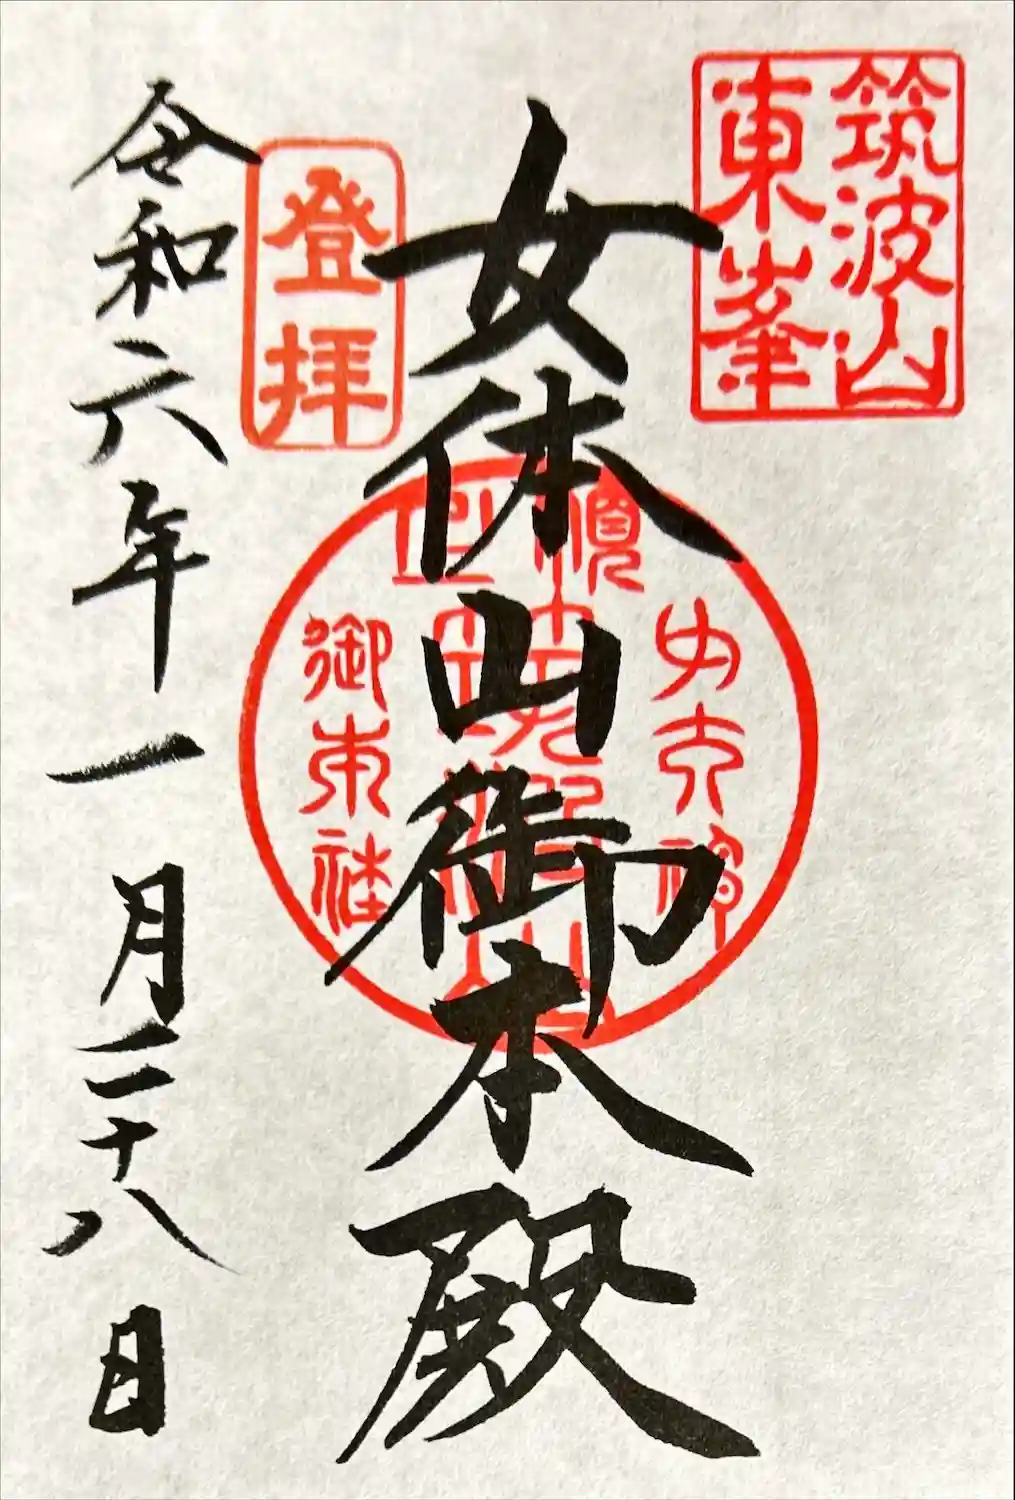 筑波山
東峯
女体山御本殿
登拝
御本社
令和六年一月二十八日